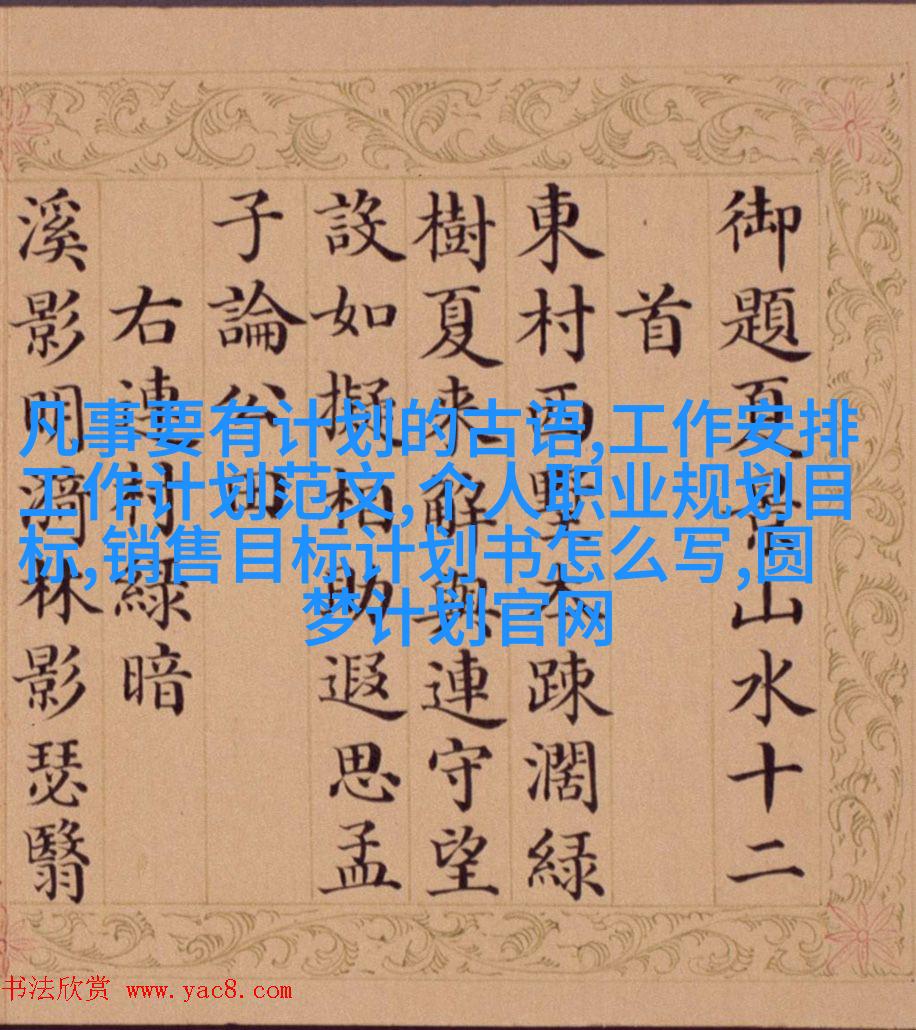 御題夏景山水十二
首
東村西墅本疎濶緑
樹夏來解與連守望
設如擬相助遐思孟
子論公田
右連村緑暗
溪影明漪林影瑟翳
凡事要有计划的古语,工作安排
工作计划范文,个人职业规划目
标,销售目标计划书怎么写,圆
梦计划官网
书法欣赏 www.yac8.com